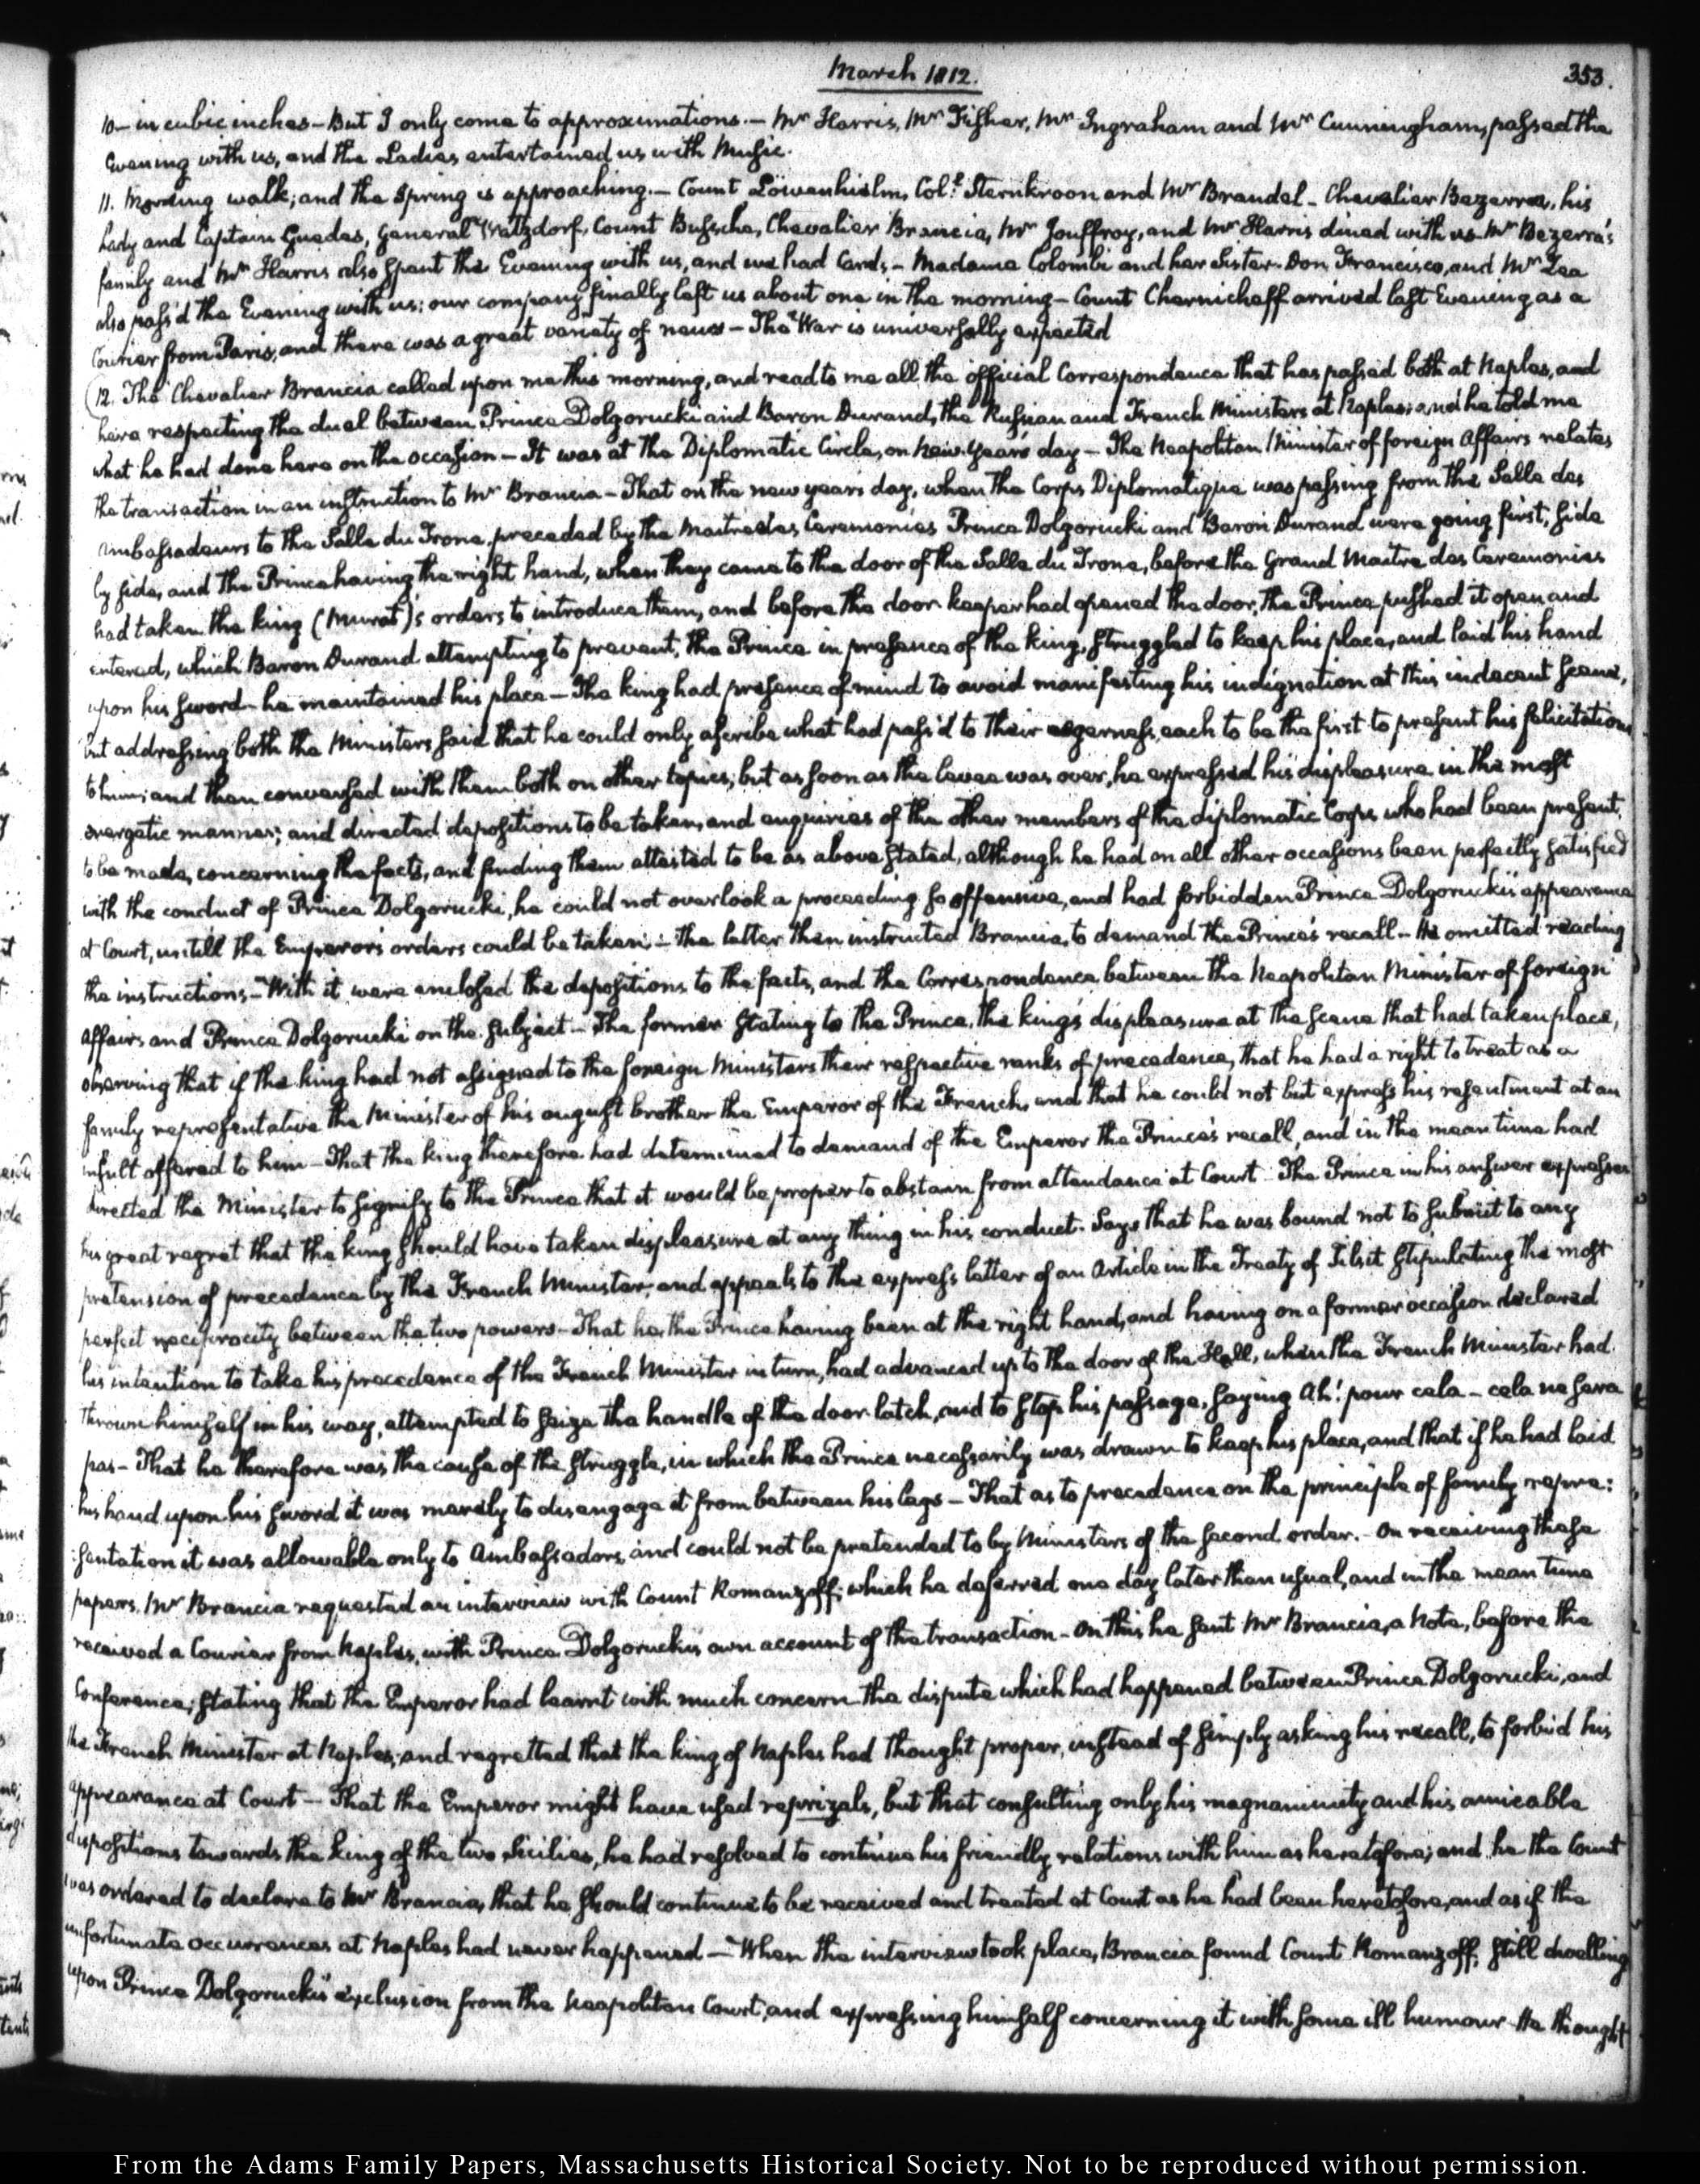 March 1812.
353.
10 — in cubic inches — But I only come to approximations. — Mr Harris, Mr Fisher, Mr Ingraham and Mr Cunningham, passed the
Evening with us, and the Ladies entertained us with Music.
11. Morning walk; and the Spring is approaching. — Count Löwenhielm, Coll. Sternkroon and Mr Brandel — Chevalier Bezerra, his
Lady and Captain Guedes, General Watzdorf, Count Bussche, Chevalier Brancia, Mr Jouffroy, and Mr Harris dined with us — Mr Bezerra's
family and Mr Harris also spent the Evening with us, and we had Cards. — Madame Colombi and her Sister. Don Francisco, and Mr Zea
also pass'd the Evening with us; our company finally left us about one in the morning — Count Chernicheff arrived last Evening as a
Courier from Paris, and there was a great variety of news — The War is universally expected
12. The Chevalier Brancia called upon me this morning, and read to me all the official Correspondence that has passed both at Naples, and
here respecting the duel between Prince Dolgorucki and Baron Durand, the Russian and French Ministers at Naples; and he told me
what he had done here on the occasion — It was at the Diplomatic Circle, on New-Year's day — The Neapolitan Minister of foreign Affairs relates
the transaction in an instruction to Mr Brancia — That on the new years day, when the Corps Diplomatique was passing from the Salle des
Ambassadeurs to the Salle du Trone, preceded by the Maitre des Ceremonies Prince Dolgorucki and Baron Durand were going first, side
by side, and the Prince having the right hand, when they came to the door of the Salle du Trone, before the Grand Maitre des Ceremonies
had taken the king (Murat)'s orders to introduce them, and before the door keeper had opened the door, the Prince pushed it open and
entered, which Baron Durand attempting to prevent, the Prince in presence of the king, struggled to keep his place, and laid his hand
upon his sword — he maintained his place — The king had presence of mind to avoid manifesting his indignation at this indecent scene,
but addressing both the Ministers said that he could only ascribe what had pass'd to their eagerness, each to be the first to present his felicitations
to him; and then conversed with them both on other topics; but as soon as the levee was over, he expressed his displeasure in the most
energetic manner; and directed depositions to be taken, and enquiries of the other members of the diplomatic Corps who had been present,
to be made, concerning the facts, and finding them attested to be as above stated, although he had on all other occasions been perfectly satisfied
with the conduct of Prince Dolgorucki, he could not overlook a proceeding so offensive, and had forbidden Prince Dolgorucki's appearance
at Court, untill the Emperor's orders could be taken. — The letter then instructed Brancia, to demand the Prince's recall — He omitted reading
the instructions. — With it were enclosed the depositions to the facts, and the Correspondence between the Neapolitan Minister of foreign
Affairs and Prince Dolgorucki on the subject — The former stating to the Prince, the king's displeasure at the scene that had taken place,
observing that if the king had not assigned to the foreign Ministers their respective ranks of precedence, that he had a right to treat as a
family representative the Minister of his august brother the Emperor of the French, and that he could not but express his resentment at an
insult offered to him — That the king therefore had determined to demand of the Emperor the Prince's recall, and in the mean time had
directed the Minister to signify to the Prince that it would be proper to abstain from attendance at Court — The Prince in his answer expresses
his great regret that the king should have taken displeasure at any thing in his conduct. Says that he was bound not to submit to any
pretension of precedence by the French Minister, and appeals to the express letter of an Article in the Treaty of Tilsit stipulating the most
perfect reciprocity between the two powers — That he, the Prince having been at the right hand, and having on a former occasion declared
his intention to take his precedence of the French Minister in turn, had advanced up to the door of the Hall, when the French Minister had
thrown himself in his way, attempted to seize the handle of the door-latch, and to stop his passage, saying Ah! pour cela — cela ne sera
pas — That he therefore was the cause of the struggle, in which the Prince necessarily was drawn to keep his place, and that if he had laid
his hand upon his sword it was merely to disengage it from between his legs — That as to precedence on the principle of family repre:
:sentation it was allowable only to Ambassadors, and could not be pretended to by Ministers of the second order. — On receiving these
papers, Mr Brancia requested an interview with Count Romanzoff; which he deferred one day later than usual, and in the mean time
received a Courier from Naples, with Prince Dolgorucki's own account of the transaction — On this he sent Mr Brancia, a Note, before the
Conference; stating that the Emperor had learnt with much concern the dispute which had happened between Prince Dolgorucki, and
the French Minister at Naples, and regretted that the king of Naples had thought proper, instead of simply asking his recall, to forbid his
appearance at Court — That the Emperor might have used reprizals, but that consulting only his magnanimity and his amicable
dispositions towards the king of the two Sicilies, he had resolved to continue his friendly relations with him as heretofore; and he the Count
was ordered to declare to Mr Brancia, that he should continue to be received and treated at Court as he had been heretofore, and as if the
unfortunate occurrences at Naples had never happened — When the interview took place, Brancia found Count Romanzoff, still dwelling
upon Prince Dolgorucki's exclusion from the Neapolitan Court, and expressing himself concerning it with some ill humour — He thought
From the Adams Family Papers, Massachusetts Historical Society. Not to be reproduced without permission.